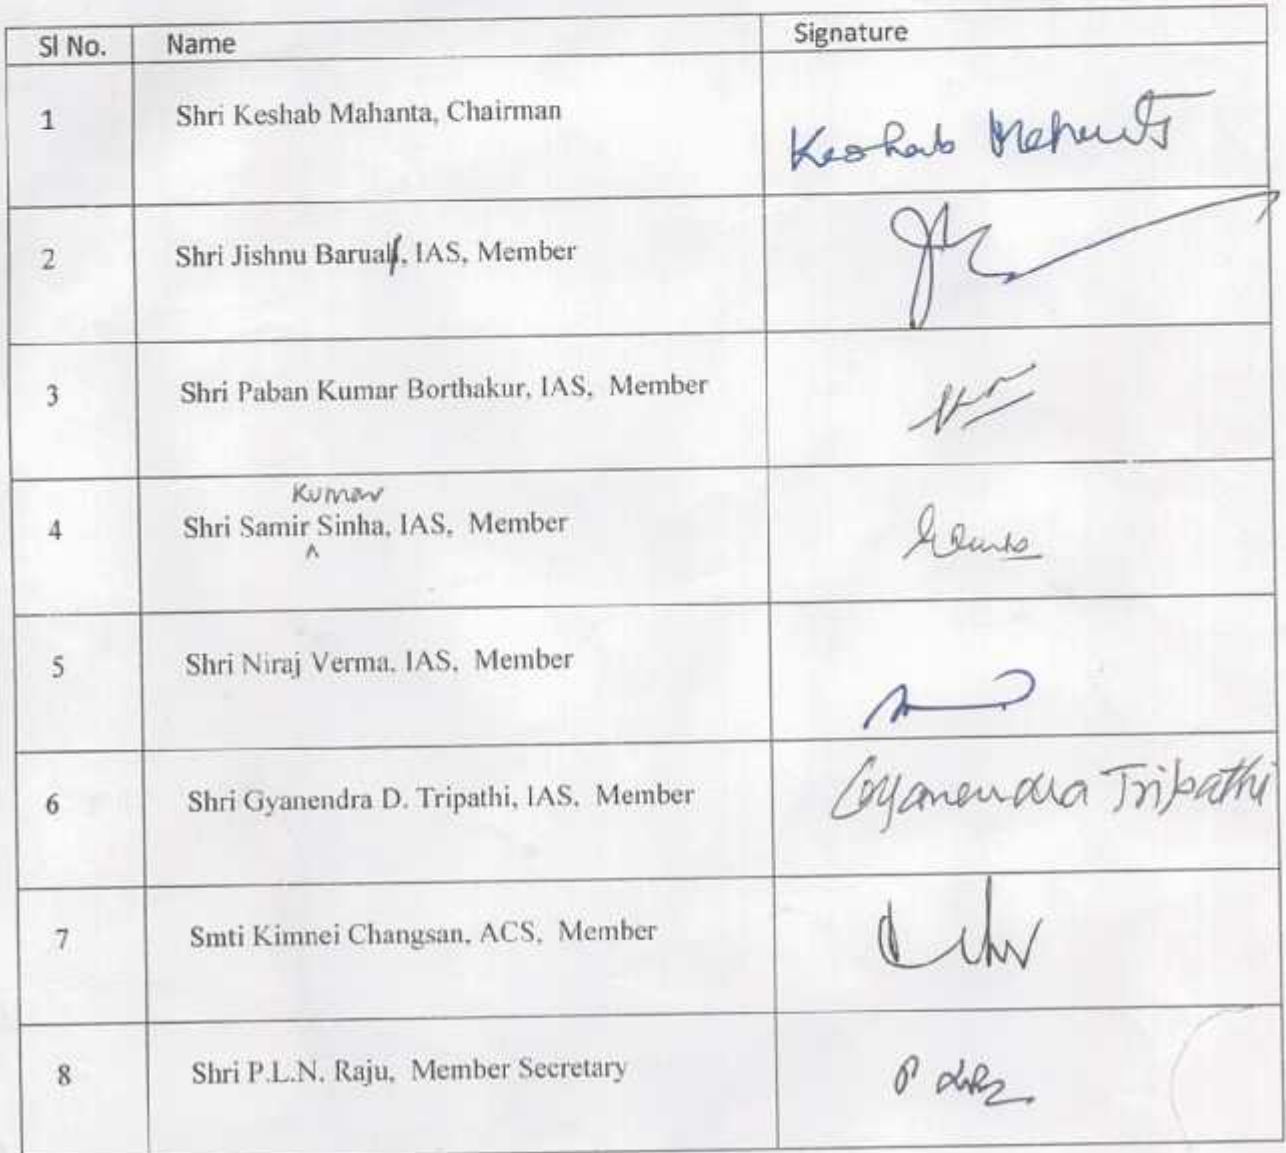 Sl No. Name Signature
1 Shri Keshab Mahanta, Chairman Keshab Mahanta
2 Shri Jishnu Barua, IAS, Member
3 Shri Paban Kumar Borthakur, IAS, Member
Kumar
4 Shri Samir Sinha, IAS, Member
^
5 Shri Niraj Verma, IAS, Member
6 Shri Gyanendra D. Tripathi, IAS, Member Gyanendra Tripathi
7 Smti Kimnei Changsan, ACS, Member
8 Shri P.L.N. Raju, Member Secretary